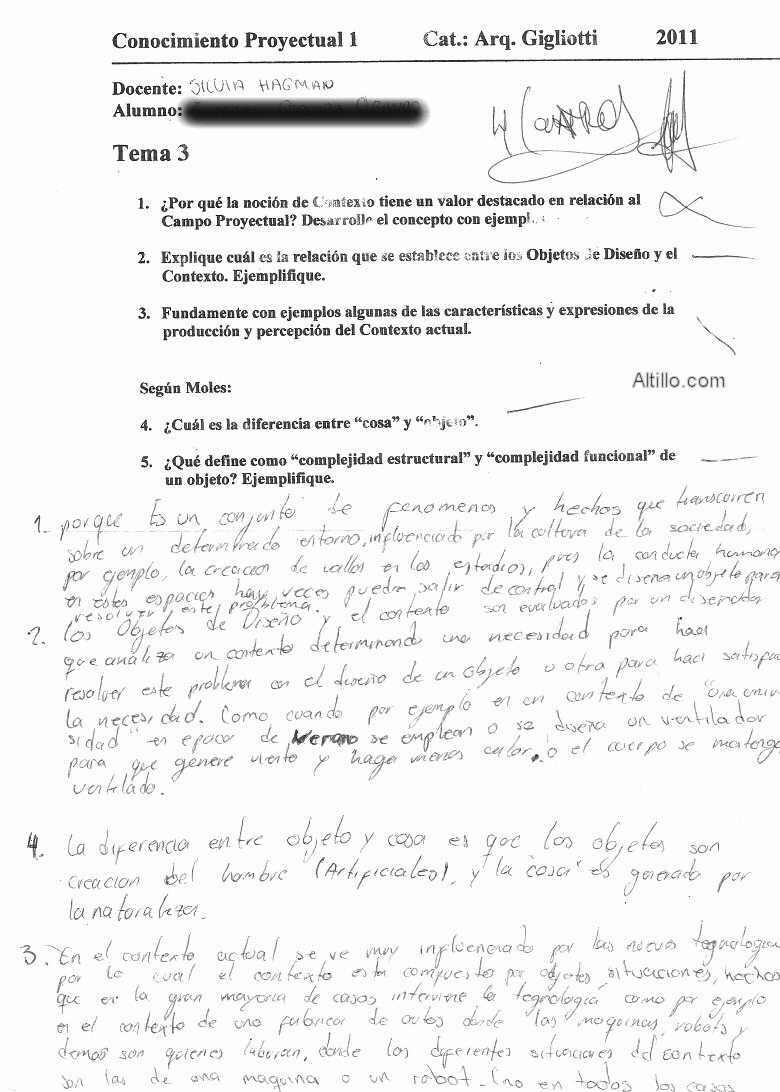 Conocimiento Proyectual 1 Cat.: Arq. Gigliotti 2011
Docente: SILVIA HAGMAN
Alumno:
Tema 3
1. ¿Por qué la noción de Contexto tiene un valor destacado en relación al
Campo Proyectual? Desarrolle el concepto con ejempl
2. Explique cuál es la relación que se establece entre los Objetos de Diseño y el
Contexto. Ejemplifique.
3. Fundamente con ejemplos algunas de las características y expresiones de la
producción y percepción del Contexto actual.
Altillo.com
Según Moles:
4. ¿Cuál es la diferencia entre “cosa” y “objeto”.
5. ¿Qué define como “complejidad estructural” y “complejidad funcional” de
un objeto? Ejemplifique.
1. porque Es un conjunto de fenomenos y hechos que transcurren
sobre un determinado entorno, influenciado por la cultura de la sociedad,
por ejemplo, la creacion de vallas en los estadios, pues la conducta humana
en estos espacios hay veces puede salir de control y se diseña un objeto para
resolver este problema.
2. los Objetos de Diseño y el contexto son evaluados por un diseñador
que analiza un contexto determinando una necesidad para haci
resolver este problema con el diseño de un objeto u otra para haci satisfac
la necesidad. Como cuando por ejemplo en un contexto de "una univer
sidad" en epoca de verano se emplean o se diseña un ventilador
para que genere viento y haga menos calor, o el cuerpo se matenga
ventilado.
4. La diferencia entre objeto y cosa es que los objetos son
creacion del hombre (Artificiales), y la "cosa" es generado por
la naturaleza.
3. En el contexto actual se ve muy influenciado por las nuevas tegnologias
por lo cual el contexto esta compuesto por objetos, situaciones, hechos
que en la gran mayoria de casos interviene la tegnologia, como por ejemplo
en el contexto de una fabrica de autos donde las maquinas, robots y
demas son quienes laboran, donde los diferentes situaciones del contexto
son las de una maquina o un robot. (no en todos los casos